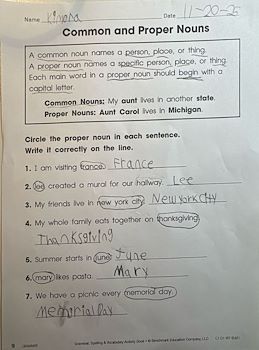 Name Kimora Date 11-20-25
Common and Proper Nouns
A common noun names a person, place, or thing.
A proper noun names a specific person, place, or thing.
Each main word in a proper noun should begin with a
capital letter.
Common Nouns: My aunt lives in another state.
Proper Nouns: Aunt Carol lives in Michigan.
Circle the proper noun in each sentence.
Write it correctly on the line.
1. I am visiting france. France
2. lee created a mural for our hallway. Lee
3. My friends live in new york city. New york City
4. My whole family eats together on thanksgiving.
Thanksgiving
5. Summer starts in june. June
6. mary likes pasta. Mary
7. We have a picnic every memorial day.
Memorial Day
Grammar, Spelling & Vocabulary Activity Book • © Benchmark Education Company, LLC